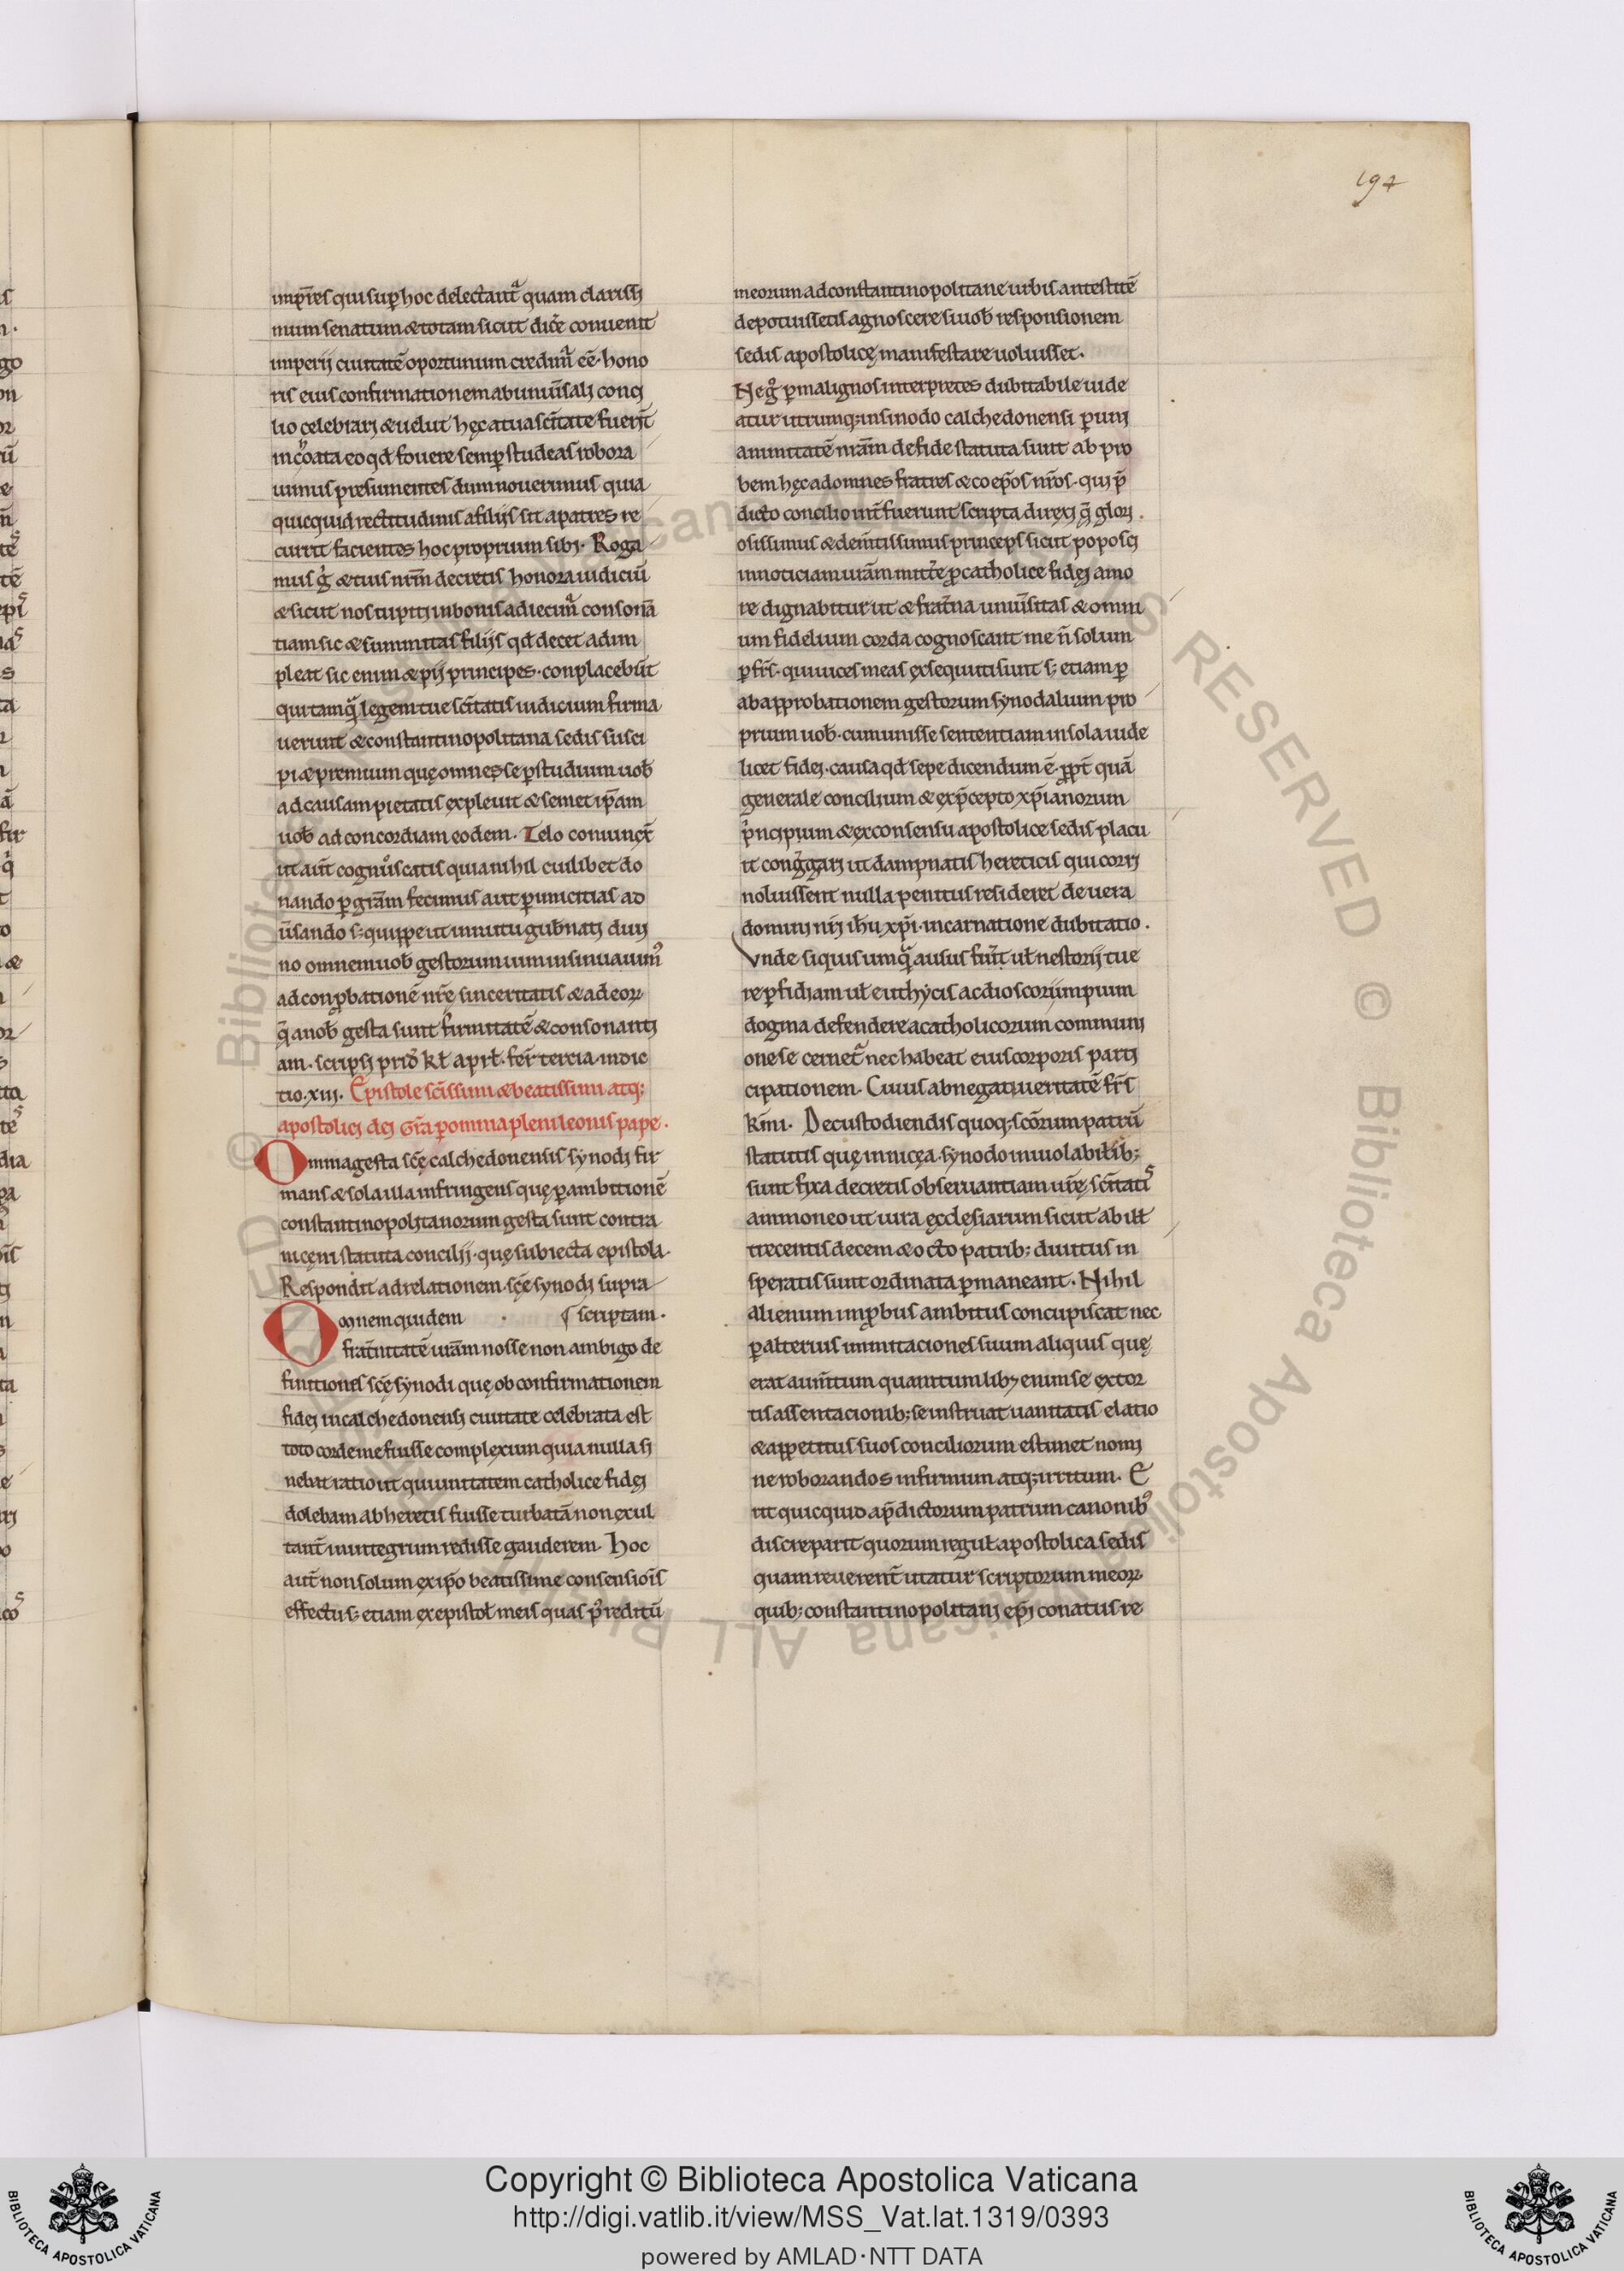 192
imp̄res qui sup hoc delectant᷑ quam clarissi
mum senatum & totam sicut dic̄e conuenit
imperij ciuitatē oportunum credim᷑ eē· hono
ris eius confirmationem ab uniũsali conci
lio celebrari & uelut hęc a tua sc̄itate fuer̄t
inchoata eo qd fouere semp studeas robora
uimus presumentes dum nouerimus quia
quicquid rectitudinis a filijs fit a patres re
currit facientes hoc proprium sibi· Roga
mus g̊ & tuis nr̄m decretis honora iudiciū
& sicut nos cupiti in bonis adiecim᷑ consonā
tiam sic & summitas filijs qd decet adim
pleat sic enim & pij principes· conplacebūt
qui tamq̃ legem tue sc̄itatis iudicium firma
uerunt & constantinopolitana sedis susci
pi & premium quę omne se p studium uob̄
ad causam pietatis expleuit & semet ip̄am
uob̄ ad concordiam eodem· Zelo coniunx̄
ut aut̄ cognoscatis quia nihil cuilibet do
nando p grām fecimus aut p inicitias ad
ũsando s; quippe ut in nutu gub̄nati diui
no omnem uob̄ gestorum uim insinuauim᷒
ad conp̱bationē nr̄ę sinceritatis & ad eoꝝ
q̄ a nob̄ gesta sunt firmitatē & consonanti
am· scripsi prid̄ kł april· fer̄ tercia· indic
tio· xiii· Epistole sc̄issimi & beatissimi atq;
apostolici dei gr̄a p omnia pleni leonis pape·
Omnia gesta sc̄ę calchedonensis synodi fir
mans & sola illa infringens quę p ambitionē
constantinopolitanorum gesta sunt contra
niceni statuta concilij· quę subiecta epistola·
Respondit ad relationem· sc̄ę synodi supra
Omnem quidem · scriptam·
frat̄nitatē ur̄am nosse non ambigo de
finitiones sc̄ę synodi quę ob confirmationem
fidei in calchedonensi ciuitate celebrata est
toto corde me fuisse complexum quia nulla si
nebat ratio ut qui unitatem catholice fidei
dolebam ab heretis fuisse turbatā non excul
tant̄ in integrum redisse gauderem· Hoc
aut̄ non solum ex ip̄o beatissime consensiōis
effectu s; etiam ex epistoł meis quas p̊ reditū
meorum ad constantinopolitane urbis antestitē
depotuissetis agnoscere si uob̄ responsionem
sedis apostolicę manifestare uoluisset·
Neg̊ p malignos interpretes dubitabile uide
atur utrumq; in sinodo calchedonensi p uni
animitatē nr̄am de fide statuta sunt ab pro
bem hęc ad omnes fratres & coep̄os nr̄os· qui p̄
dicto concilio int̄fuerunt scripta direxi q̄ glori·
osissimus & clem̄tissimus princeps sicut poposci
in noticiam ur̄am mitt̄e p catholice fidei amo
re dignabitur ut & frat̄na uniũsitas & omni
um fidelium corda cognoscant me n̄ solum
p fr̄s· qui uices meas exsequuti sunt s; etiam p
ab approbationem gestorum synodalium pro
prium uob̄· cum unisse sententiam in sola uide
licet fidei· causa qd sepe dicendum ē· ppt̄ quā
generale concilium & ex p̄cepto xp̄ianorum
p̊ncipium & ex consensu apostolice sedis placu
it congregari ut dampnatis hereticis qui corri
noluissent nulla penitus resideret de uera
domini nr̄i ih̄u xp̄i· incarnatione dubitatio·
Vnde si quis umq̃ ausus fu̅it uł nestorij tue
re pfidiam uł euthycis ac dioscori impium
dogma defendere a catholicorum communi
one se cernet᷑ nec habeat eius corporis parti
cipationem· Cuius abnegat ueritatē fr̄s
kr̄mi· De custodiendis quoq; sc̄orum patrū
statutis quę in nicęa· synodo inuiolabilib;
sunt fixa decretis obseruantiam ur̄ę sc̄itati᷒
ammoneo ut iura ęcclęsiarum sicut ab ill̄
trecentis decem & octo patrib; diuitus in
speratis sunt ordinata pmaneant· Nihil
alienum imp̱bus ambitus concupiscat nec
p alterius imitaciones suum aliquis quę
erat aum̄tum quantumlibꝫ enim se extor
tis assentacionib; se instruat uanitatis elatio
& appetitus suos conciliorum estimet nomi
ne roborandos infirmum atq; irritum· E
rit quicquid a p̄dictorum patrum canonib᷒
discreparit quorum reguł apostolica sedis
quam reuerent̄ utatur scriptorum meoꝝ
quib; constantinopolitani ep̄i conatus re
Copyright © Biblioteca Apostolica Vaticana
http://digi.vatlib.it/view/MSS_Vat.lat.1319/0393
powered by AMLAD·NTT DATA
BIBLIOTECA APOSTOLICA VATICANA
BIBLIOTECA APOSTOLICA VATICANA